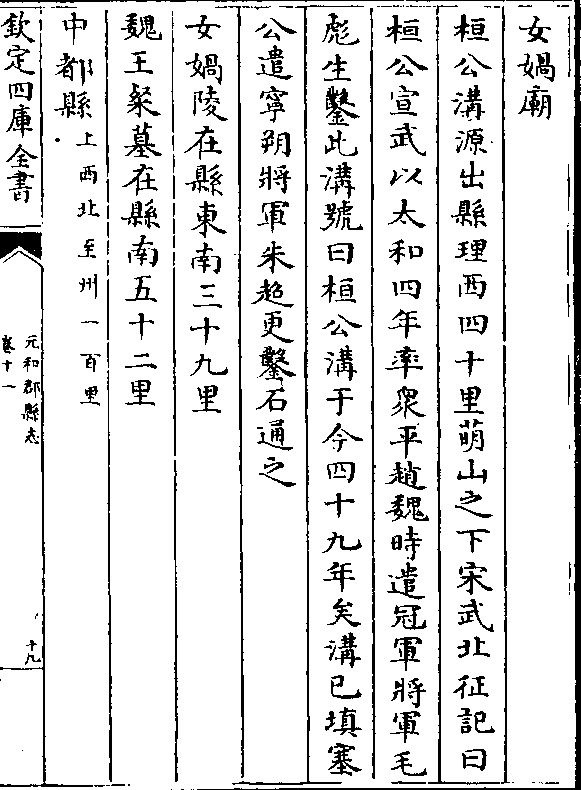 女媧廟
桓公溝源出縣理西四十里萌山之下宋武北征記曰
桓公宣武以太和四年率衆平趙魏時遣冠軍將軍毛
彪生鑿此溝號曰桓公溝于今四十九年矣溝已填塞
公遣寧朔將軍朱超更鑿石通之
女媧陵在縣東南三十九里
魏王粲墓在縣南五十二里
中都縣上西北至州一百里
欽定四庫全書
元和郡縣志
卷十一
十九